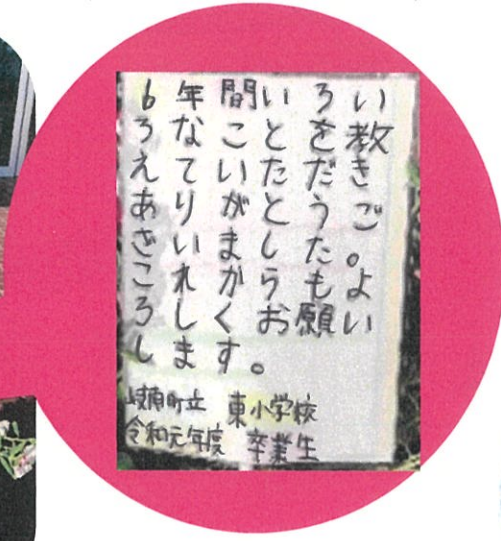 6年間いろい
ろなことを教
えていただき
ありがとうご
ざいました。
これからもよ
ろしくお願い
します。
町立 東小学校
令和元年度 卒業生